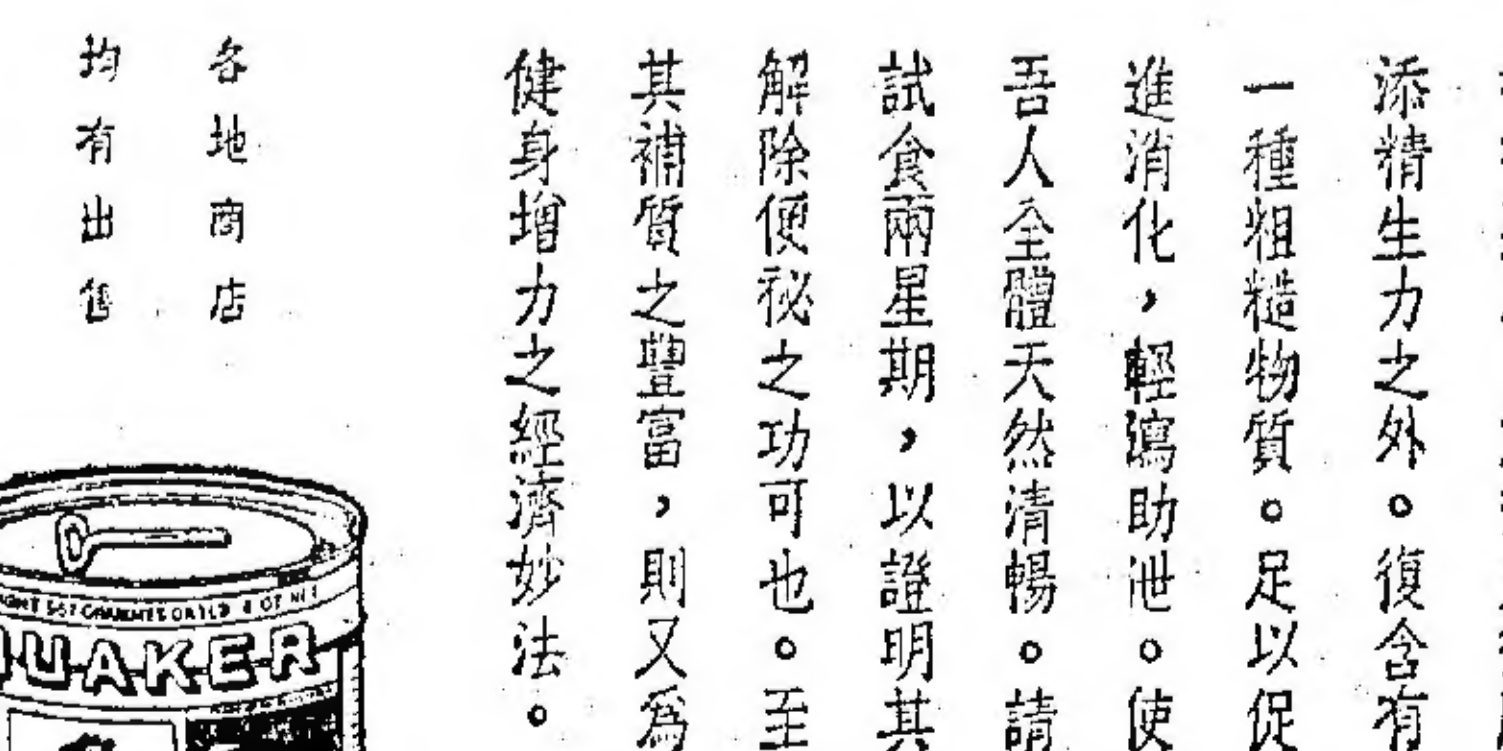 添精生力之外。復含有
一種粗糙物質。足以促
進消化,輕瀉助泄。使
吾人全體天然清暢。請
試食兩星期,以證明其
解除便秘之功可也。至
其補質之豐富,則又爲
健身增力之經濟妙法。
各地商店
均有出售
QUAKER